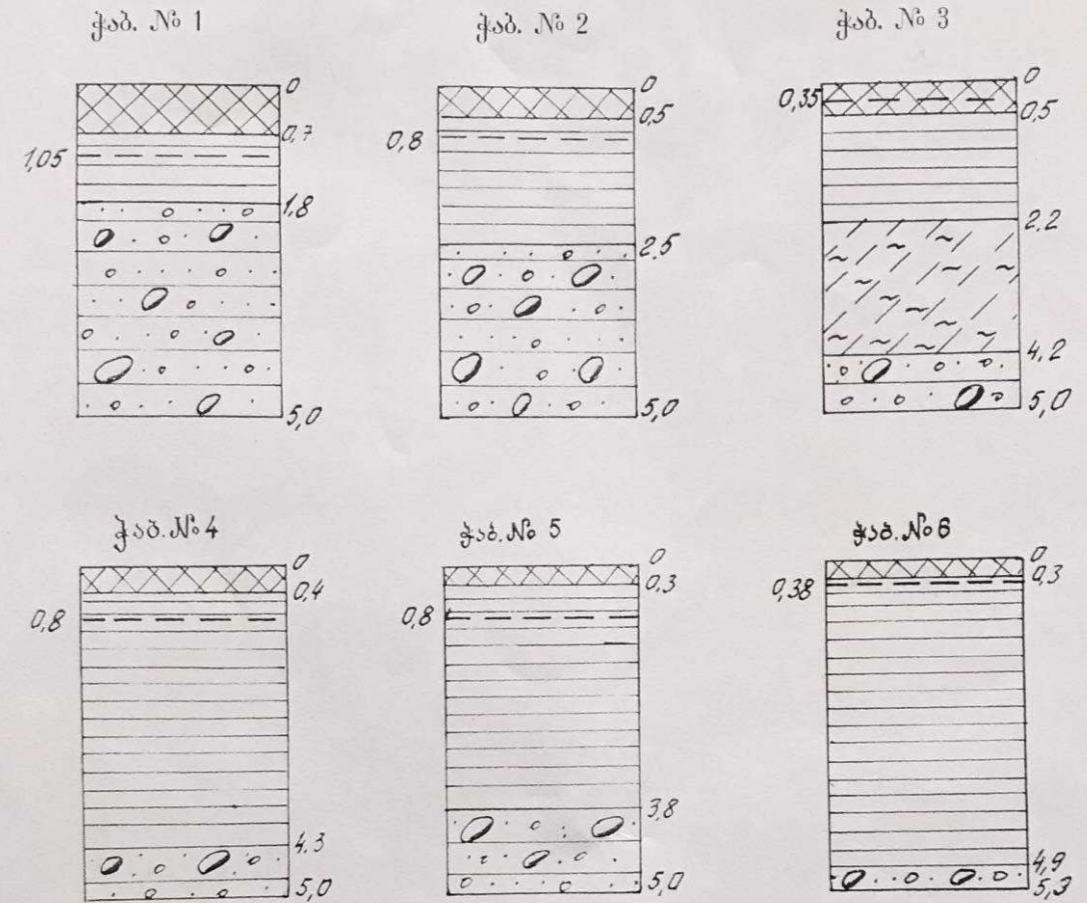 ჭაბ. № 1
0
0,7
1,05
1,8
5,0
ჭაბ. № 2
0
0,5
0,8
2,5
5,0
ჭაბ. № 3
0
0,35
0,5
2,2
4,2
5,0
ჭაბ. № 4
0
0,4
0,8
4,3
5,0
ჭაბ. № 5
0
0,3
0,8
3,8
5,0
ჭაბ. № 6
0
0,3
0,38
4,9
5,3